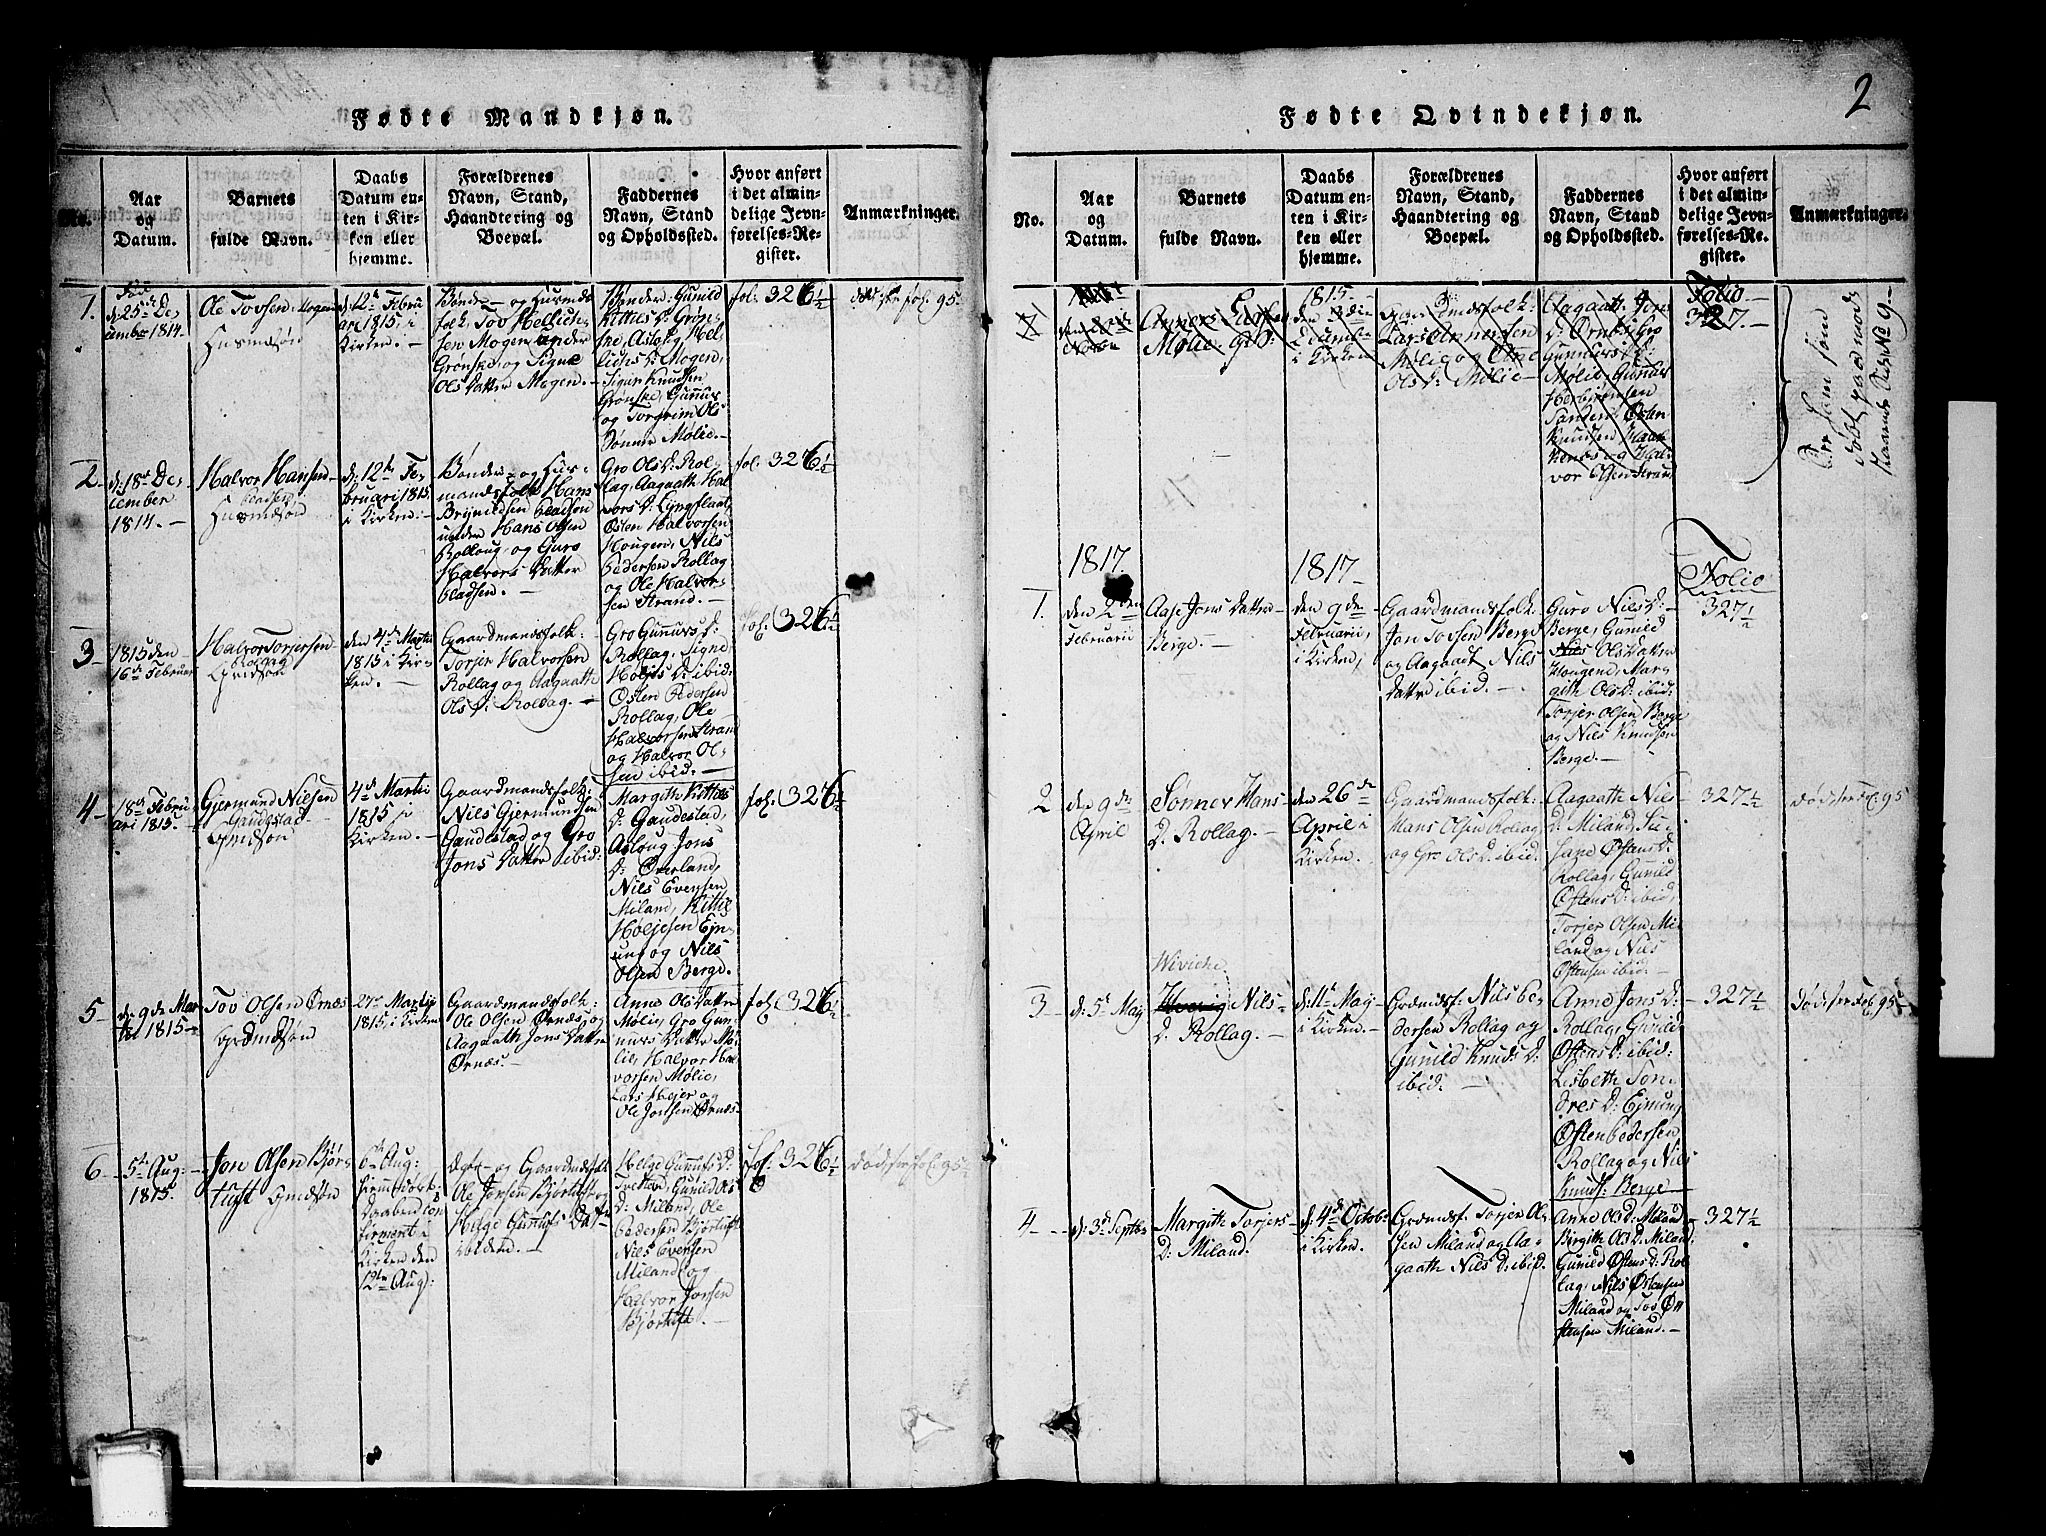 Fødte Mandkjøn.
No.
Aar
og
Datum.
Barnets
fulde Navn.
Daabs
Datum en-
ten i Kir-
ken eller
hjemme.
Forældrenes
Navn, Stand,
Haandtering og
Boepæl.
Faddernes
Navn, Stand
og Opholdssted.
Hvor anført
i det almin-
delige Jevn-
førelses-Re-
gister.
Anmærkninger.
1.
d: 25de De-
cember 1814.
Ole Tovsen Mogen
Husmdsøn
d: 12te Febru
ari 1815, i
Kirken. -
Bønde- og Husmds
folk Tov Hellich-
sen Mogen under
Grønske og Signe
Ols Datter Mogen. -
Bønder: Gunild
Kittils D: Grøn-
ske, Aslaug Hel-
lichs D: Mogen,
Sigur Knudsen
Grønske, Gunnus
og Torgrim Ols
Sønner Mølie. -
fol. 326½
død se fol. 95.
2.
d: 18de De-
cember
1814. -
Halvor Hansen
Bladsen
Husmdsøn
d: 12te Fe-
bruari 1815
i Kirken. -
Bønde- og Hus-
mandsfolk Hans
Brynildsen Bladsen
under Hans Olsen
Bollaug og Guro
Halvors Datter
Bladsen. -
Gro Ols D: Rol-
lag, Aagaath Hal
vors D: Lyngflaat,
Østen Halvorsen
Hougen, Nils
Pedersen Rollag
og Ole Halvor-
sen Strand. -
fol. 326½
3 -
1815 den
16de Februar
Halvor Torjersen
Rollag
Grdsøn
den 4de Martii
1815 i Kir-
ken. -
Gaardmandsfolk:
Torjer Halvorsen
Rollag og Aagaath
Ols D: Rollag. -
Gro Gunnurs D:
Rollag, Signe
Holjes D: ibid:
Østen Pedersen
Rollag, Ole
Halvorsen Strand
og Halvor Ol-
sen ibid. -
fol. 326½
4 -
18de Febru
ari 1815.
Gjermund Nilsen
Gaudestad
Grmdsøn
4de Martii
1815 i
Kirken. -
Gaardmandsfolk:
Nils Gjermundsen
Gaudestad og Gro
Jons Datter ibid:
Margith Kittils
D: Gaudestad,
Asloug Jons
D: Øverland,
Nils Evensen
Miland, Kittil
Holjesen Ejn-
ung og Nils
Olsen Berge.
fol. 326½
5 -
d: 9de Mar
tii 1815 -
Tov Olsen Ørnæs
Grdmdsøn
27de Martii
1815, i Kirken
Gaardmandsfolk:
Ole Olsen Ørnæs, og
Aagaath Jons Datter
Ørnæs. -
Anne Ols Datter
Mølie, Gro Gun-
nurs Datter Mø-
lie, Halvor Hal
vorsen Mølie,
Lars Mejer og
Ole Jonsen Ørnæs
fol. 326½
6 -
5te Aug: -
1815.
Jon Olsen Bjør-
tuft Grmdsøn
6te Aug:
hjemmedøb-
Daaben con
firmert i
Kirken den
12te Aug:
Ægte- og Gaardmdsfolk
Ole Jonsen Bjørtuft og
Helge Gunnufs Dat-
ter ibidem. -
Helge Gunnufs D:
Tvetten, Gunild Ols
D: Miland, Ole
Pedersen Bjørtuft
Nils Evensen
Miland og
Halvor Jonsen
Bjørtuft. -
fol. 326½
død se fol. 95½
2
Fødte Qvindekjøn.
No.
Aar
og
Datum.
Barnets
fulde Navn.
Daabs
Datum en-
ten i Kir-
ken eller
hjemme.
Forældrenes
Navn, Stand,
Haandtering og
Boepæl.
Faddernes
Navn, Stand
og Opholdssted.
Hvor anført
i det almin-
delige Jevn-
førelses-Re-
gister.
Anmærkninger.
1815 -
i Kirken
Lars Annersen
Mølie og Anne
Ols D: Mølie
Aagaath Jons
D: Ørnes, Gro
Gunnurs D:
Mølie, Gunnus
Herbjørnsen
Sanden, Østen
Knudsen Haak
kenæs og Hal
vor Olsen Strand
Folio -
327. -
Er Han som
døbt paa mods
staaende Side No 9 -
1817.
1817 -
Folio
1.
den 2den
Februarii
Aase Jons Datter
Berge. -
den 9de
Februarii,
i Kirken,
Gaardmandsfolk.
Jon Tovsen Berge
og Aagaadt Nils
Datter ibid. -
Guro Nils D: -
Berge, Gunild
Nils Ols Datter
Hougend, Mar-
gith Ols D: ibid:
Torjer Olsen Berge
og Nils Knudsøn
Berge. -
327½
2
den 9de
April
Sønner Hans
D. Rollag. -
den 26de
April i
Kirken. -
Gaardmandsfolk.
Hans Olsen Rollag
og Gro Ols D: ibid.
Aagaath Nils
D. Miland, Su-
sane Østens D:
Rollag, Gunild
Østens D: ibid,
Torjer Olsen Mi-
land og Nils
Østensen ibid. -
327½ -
Død see fol. 95
3 -
d: 5te Maj
Wiviche
Hverig Nils-
D. Rollag. -
d: 11te Maj
i Kirken. -
Grdmdsf: Nils Pe-
dersen Rollag og
Gunild Knuds D:
ibid: -
Anne Jons D: -
Rollag, Gunild
Østens D: ibid:
Lisbeth Ton-
dres D: Ejnung
Østen Pedersen
Rollag og Nils
Knuds: Berge
327½ -
Død see fol. 95
4 -
d: 3de Septbr
Margith Torjers
D: Miland.
d: 4de Octobr
i Kirken.
Grdmdsf: Torjer Ol-
sen Miland og Aa-
gaath Nils D: ibid.
Anne Ols D: Miland
Birgith Ols D: Miland,
Gunild Østens D: Rol
lag, Nils Østensen
Miland og Tov Ø-
stensen Miland. -
327½